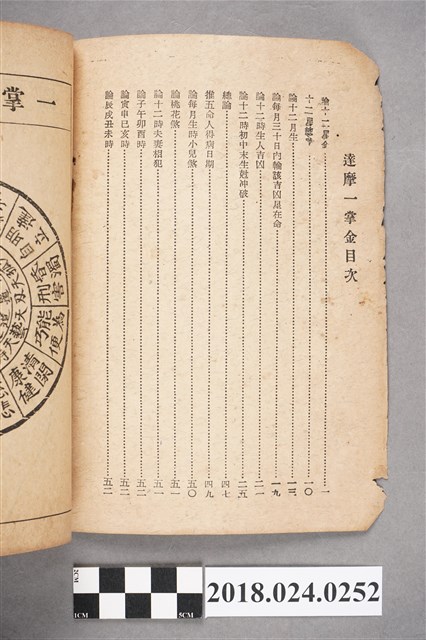 達摩一掌金目次
論十二星宮 一
十二星總斷 一〇
論十二月生 一三
論每月三十日內輪該吉凶星在命 一九
論十二時生人吉凶 二一
論十二時初中末生尅冲破 二五
總論 四七
推五命人得病日期 四九
論每月生時小兒煞 五〇
論桃花煞 五一
論十二時夫妻相犯 五一
論子午卯酉時 五二
論寅申巳亥時 五二
論辰戌丑未時 五二
一掌
清閑
康健
巧能
2CM
1CM
5CM
2018.024.0252